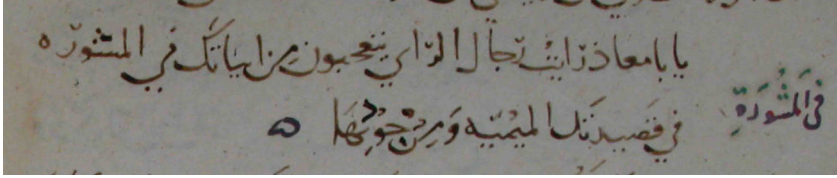 يا با معاذ رايت رجال الراي يتعجبون من ابياتك في المشورة
في قصيدتك الميمية ومن جودتها
في المشورة